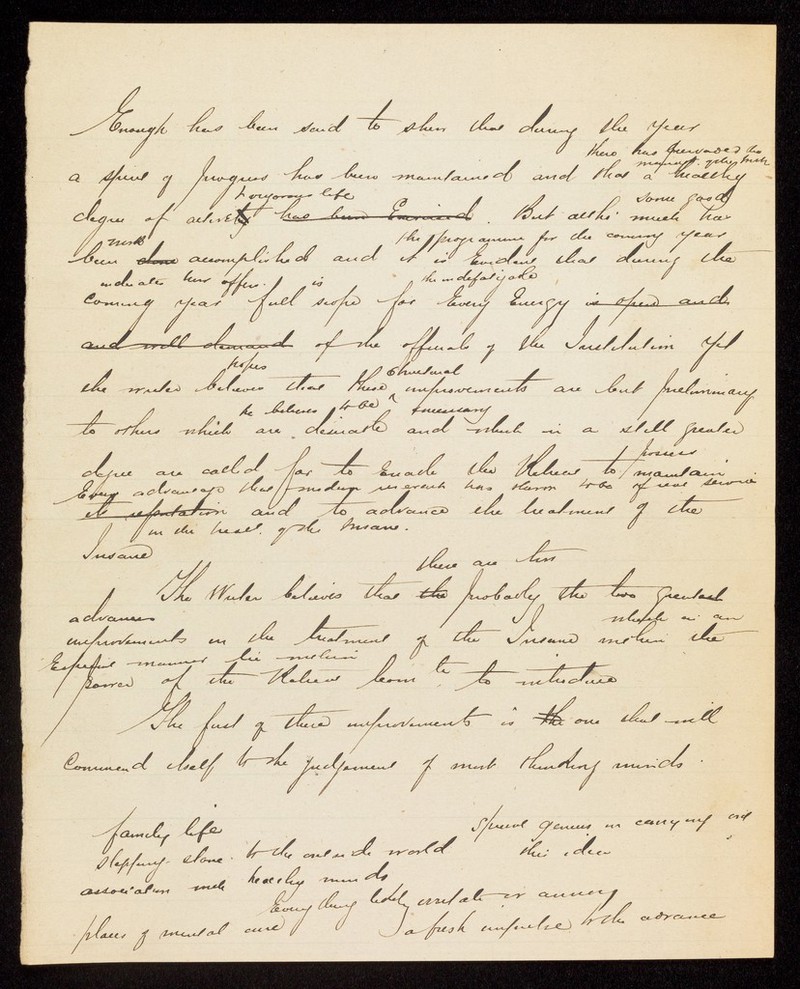 Enough has been said to show that during the year
there has pervaded the
a spirit of progress has been maintained and that a healthy
& vigorous life some good
degree of activity has been Exercised. But altho' much has
work the programme for the coming year
been done accomplished and it is Evident that during the
indicates offers is the indefatigable
coming year full scope for Every Energy is open and
and will demand of the officials of the Institution Yet
hopes structural
the writer believes that these improvements are but preliminary
he believes to be necessary
to others which are desirable and which in a still greater
possess
degree are called for to Enable the Retreat to maintain
Every advantage that modern research has shown to be of real service
its reputation and to advance the treatment of the
in the treat. of the Insane.
Insane
there are two
The Writer believes that the probably the two greatest
advances which in an
improvements in the treatment of the Insane within the
Especial manner lie within
power of the Retreat to introduce
The first of these improvements is th one that will
Commend itself to the judgement of most thinking minds.
family life
Special genius in carrying out
stepping-stone to the outside world this idea
association with healthy minds
Everything likely irritate or annoy
places of mental cure a fresh impulse to the advance